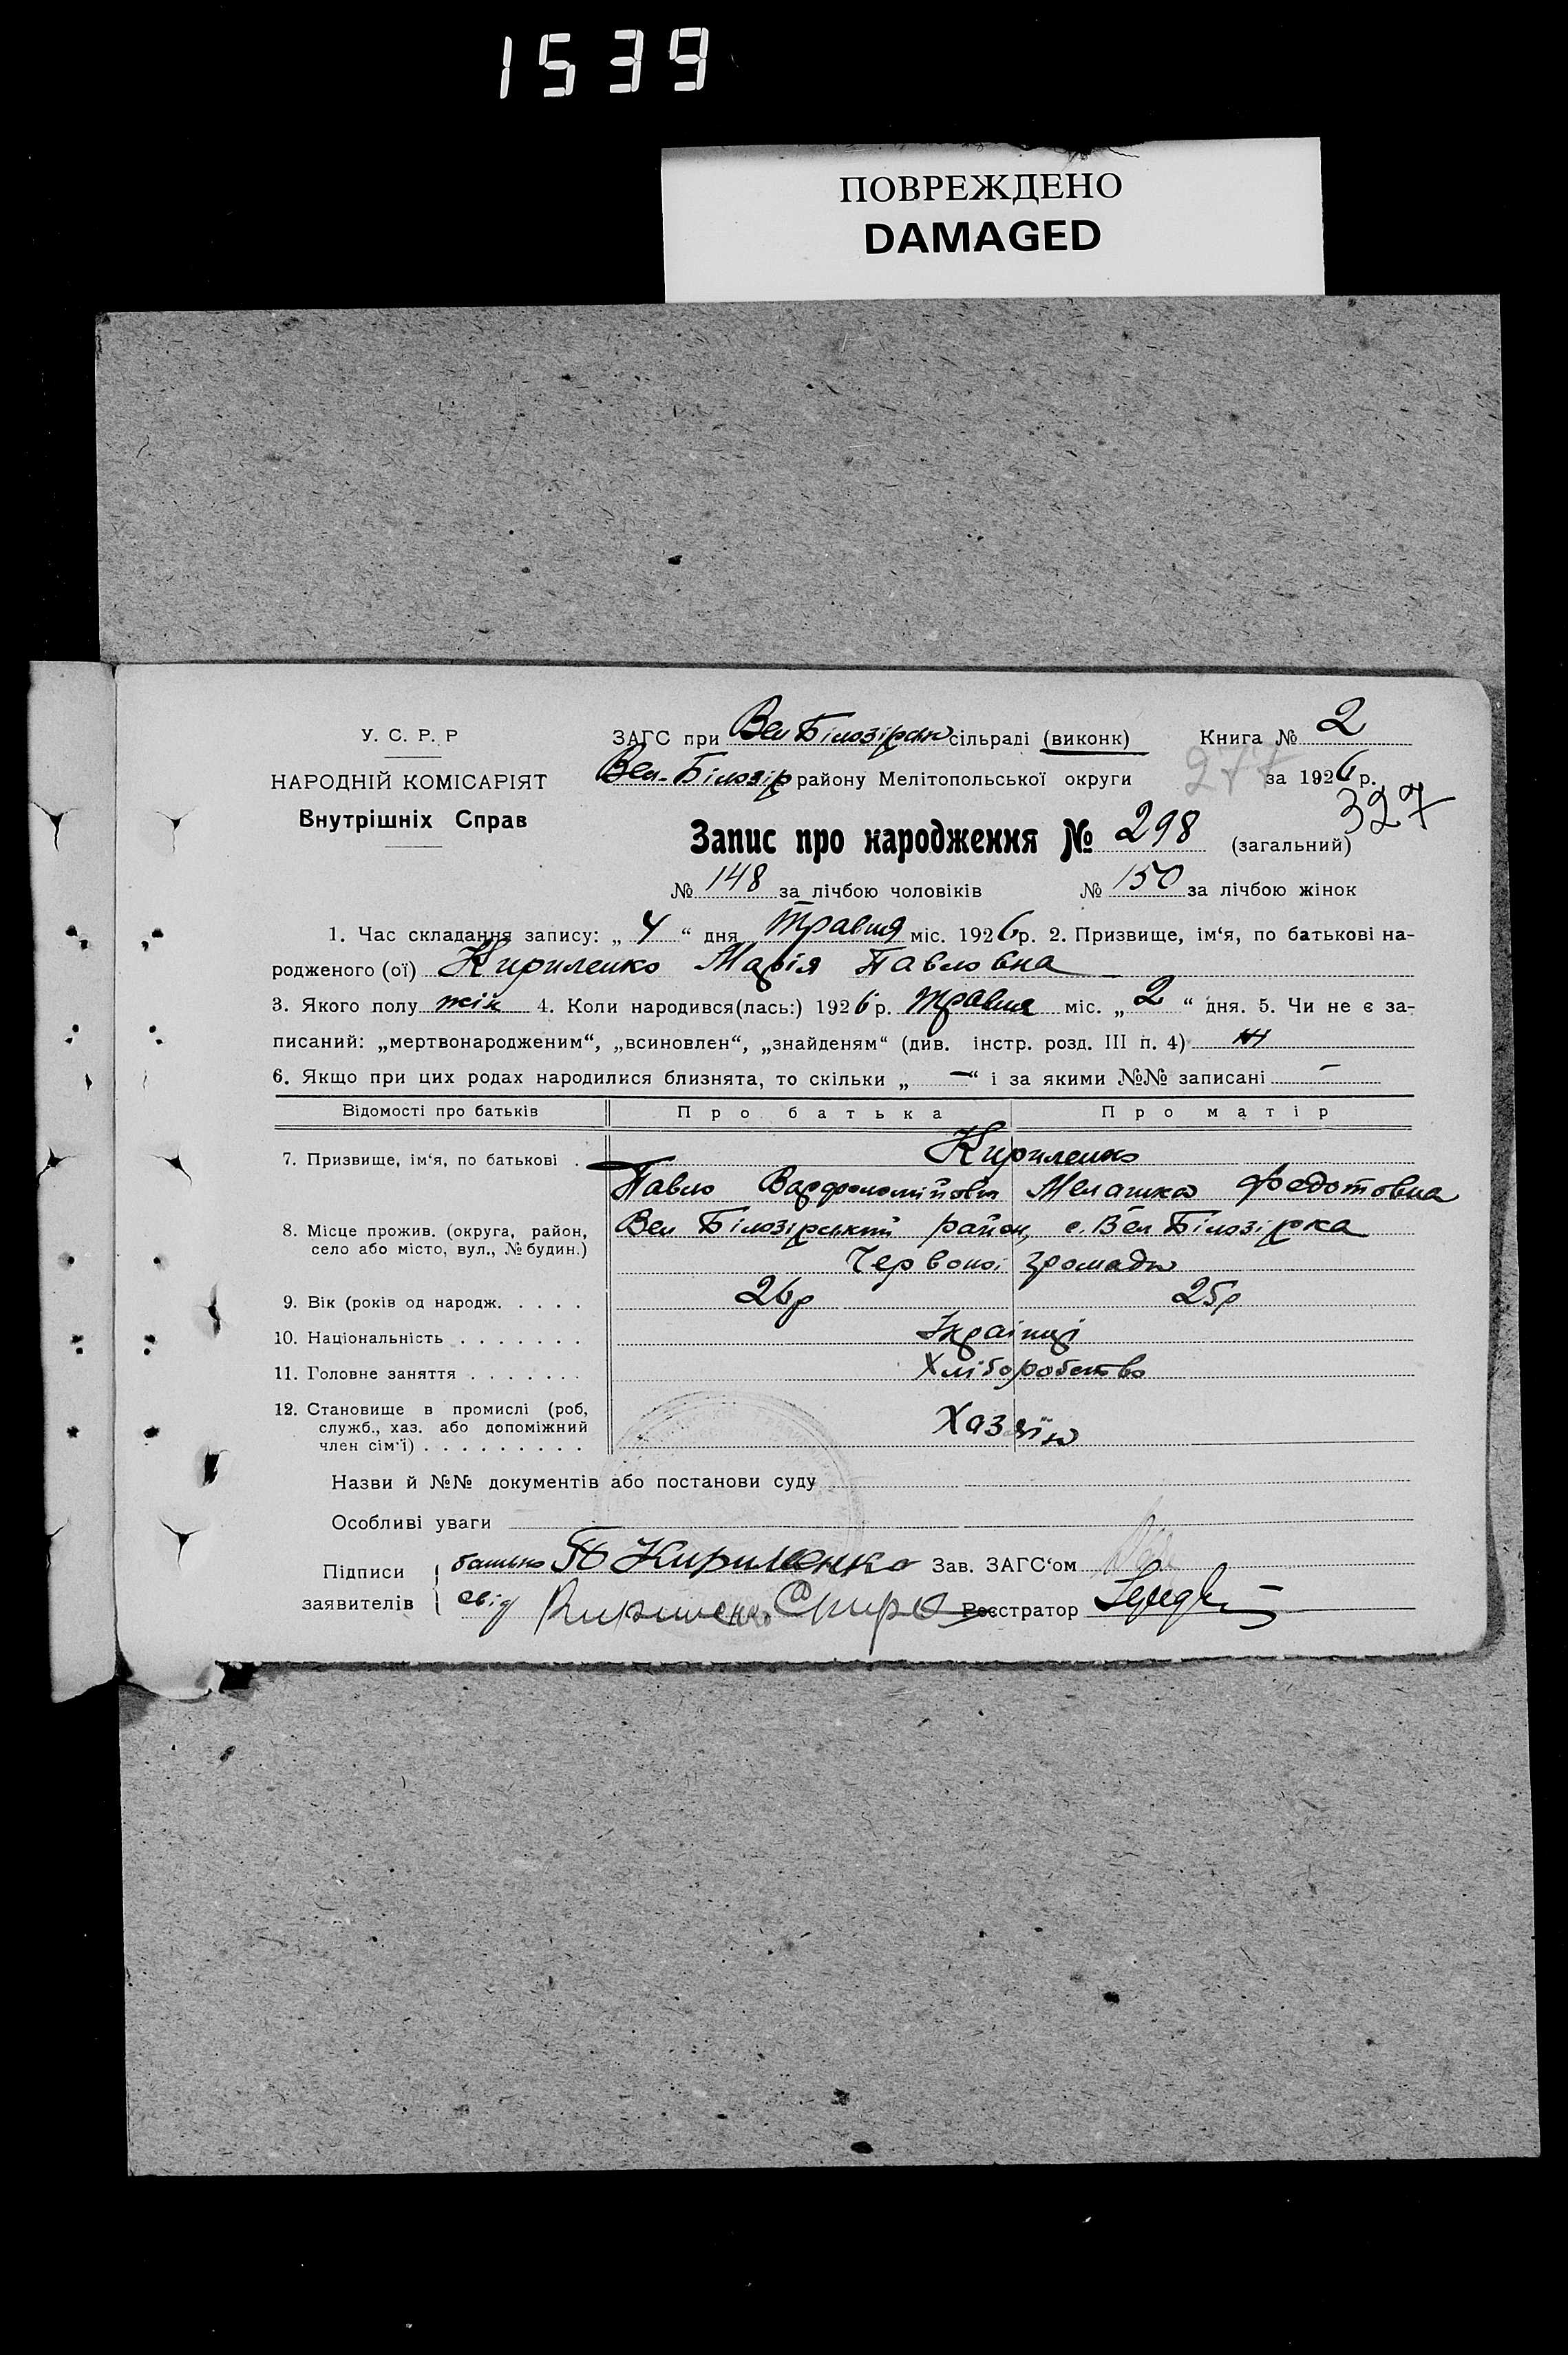 1539
ПОВРЕЖДЕНО
DAMAGED
У. С. Р. Р
НАРОДНІЙ КОМІСАРІЯТ
Внутрішніх Справ
ЗАГС при Вел Білозірськ сільраді (виконк) Книга № 2
Вел-Білозір району Мелітопольської округи 277 за 1926 р.
327
Запис про народження № 298 (загальний)
№ 148 за лічбою чоловіків № 150 за лічбою жінок
1. Час складання запису: „ 4 “ дня Травня міс. 1926 р. 2. Призвище, ім‘я, по батькові на-
родженого (ої) Кириленко Марія Павловна
3. Якого полу жін 4. Коли народився(лась:) 1926 р. травня міс. „ 2 “ дня. 5. Чи не є за-
писаний: „мертвонародженим“, „всиновлен“, „знайденям“ (див. інстр. розд. III п. 4)
6. Якщо при цих родах народилися близнята, то скільки „ — “ і за якими №№ записані —
Відомості про батьків Про батька Про матір
7. Призвище, ім‘я, по батькові . Кириленко
Павло Варфоломійович Мелашка Федотовна
8. Місце прожив. (округа, район,
село або місто, вул., № будин.)
Вел Білозірський район, с. Вел Білозірка
Червоної громади
9. Вік (років од народж. . . . . 26р 25р
10. Національність . . . . . . . Українці
11. Головне заняття . . . . . . . Хліборобство
12. Становище в промислі (роб,
служб., хаз. або допоміжний
член сім‘ї) . . . . . . . . .
Хазяїн
Назви й №№ документів або постанови суду
Особливі уваги
Підписи заявителів
батько П Кириленко Зав. ЗАГС‘ом
свід Кириленко Спиро Реєстратор